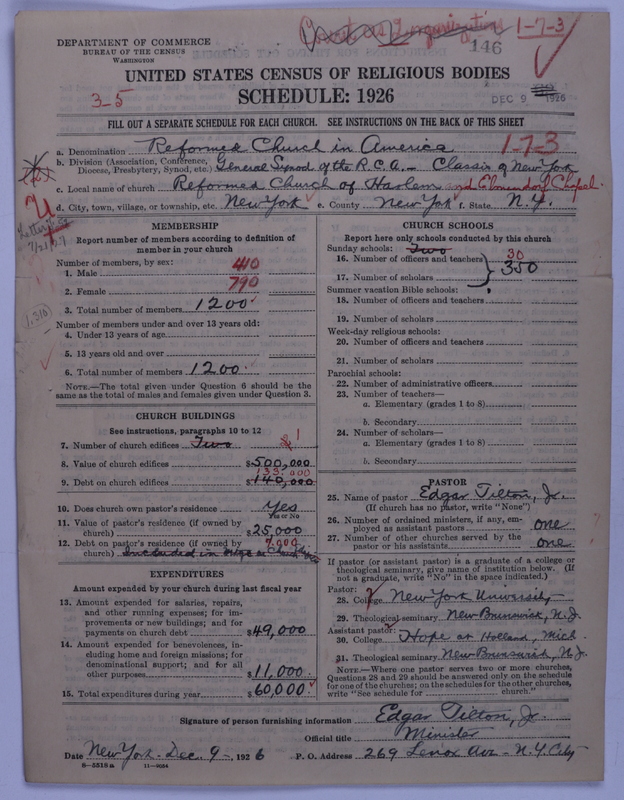 1-7-3
146
DEPARTMENT OF COMMERCE
BUREAU OF THE CENSUS
WASHINGTON
UNITED STATES CENSUS OF RELIGIOUS BODIES
SCHEDULE: 1926
3-5
DEC 9 1926
FILL OUT A SEPARATE SCHEDULE FOR EACH CHURCH. SEE INSTRUCTIONS ON THE BACK OF THIS SHEET
1-7-3
a. Denomination Reformed Church in America
b. Division (Association, Conference, Diocese, Presbytery, Synod, etc.) General Synod of the R.C.A. - Classis of New York
c. Local name of church Reformed Church of Harlem and Elmendorf Chapel.
d. City, town, village, or township, etc. New York e. County New York f. State N.Y.
Letter
7/21/27
1,316
MEMBERSHIP
Report number of members according to definition of
member in your church
Number of members, by sex:
1. Male 410
2. Female 790
3. Total number of members 1200
Number of members under and over 13 years old:
4. Under 13 years of age
5. 13 years old and over
6. Total number of members 1200
NOTE.—The total given under Question 6 should be
same as the total of males and females given under Question 3.
CHURCH BUILDINGS
See instructions, paragraphs 10 to 12
7. Number of church edifices Two 1
8. Value of church edifices $500,000
133,000
9. Debt on church edifices $140,000
10. Does church own pastor's residence Yes
Yes or No
11. Value of pastor's residence (if owned by
church) $25,000
12. Debt on pastor's residence (if owned by 7,000
church) Included in
EXPENDITURES
Amount expended by your church during last fiscal year
13. Amount expended for salaries, repairs,
and other running expenses; for im-
provements or new buildings; and for
payments on church debt $49,000
14. Amount expended for benevolences, in-
cluding home and foreign missions; for
denominational support; and for all
other purposes $11,000
15. Total expenditures during year $60,000
CHURCH SCHOOLS
Report here only schools conducted by this church
Sunday schools: Two
16. Number of officers and teachers 30
17. Number of scholars 350
Summer vacation Bible schools:
18. Number of officers and teachers
19. Number of scholars
Week-day religious schools:
20. Number of officers and teachers
21. Number of scholars
Parochial schools:
22. Number of administrative officers
23. Number of teachers—
a. Elementary (grades 1 to 8)
b. Secondary
24. Number of scholars—
a. Elementary (grades 1 to 8)
b. Secondary
PASTOR
25. Name of pastor Edgar Tilton, Jr.
(If church has no pastor, write "None")
26. Number of ordained ministers, if any, em-
ployed as assistant pastors one
27. Number of other churches served by the
pastor or his assistants one ?
If pastor (or assistant pastor) is a graduate of a college or
theological seminary, give name of institution below. (If
not a graduate, write "No" in the space indicated.)
Pastor:
28. College New York University
29. Theological seminary New Brunswick, N.J.
Assistant pastor:
30. College Hope at Holland, Mich
31. Theological seminary New Brunswick, N.J.
NOTE.—Where one pastor serves two or more churches,
Questions 28 and 29 should be answered only on the schedule
for one of the churches; on the schedules for the other churches,
write "See schedule for church."
Signature of person furnishing information Edgar Tilton, Jr.
Official title Minister
Date New York - Dec. 9 -, 1926 P. O. Address 269 Lenox Ave - N.Y. City
8-5519a 11-9054